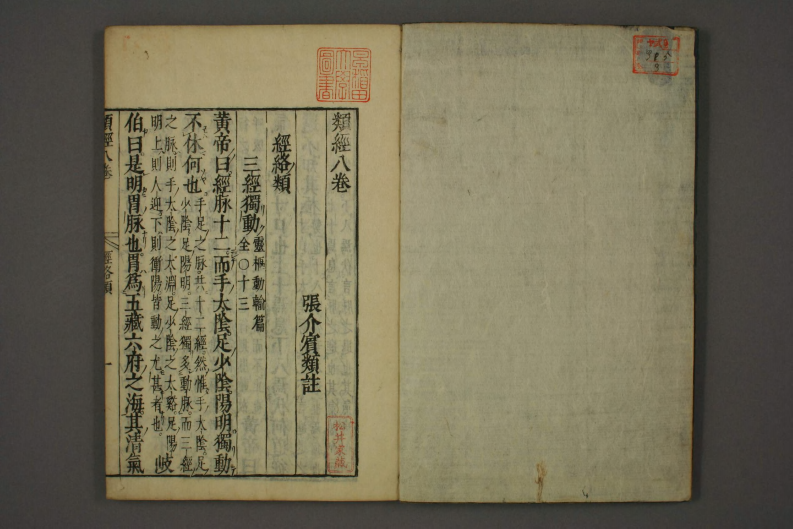 類經八卷
張介賔類註
經絡類
三經獨動 靈樞動輸篇
全〇十三
黃帝曰經脉十二而手太陰足少陰陽明獨動
不休何也 手足之脉共十二經然惟手太陰足
少陰足陽明三經獨多動脉而三經
之脉則手太陰之太淵足少陰之太谿足陽
明上則人迎下則衝陽皆動之尤甚者也 岐
伯曰是明胃脉也胃爲五藏六府之海其清氣
類經八卷
經絡類
一
早稻田大學圖書
松井家藏